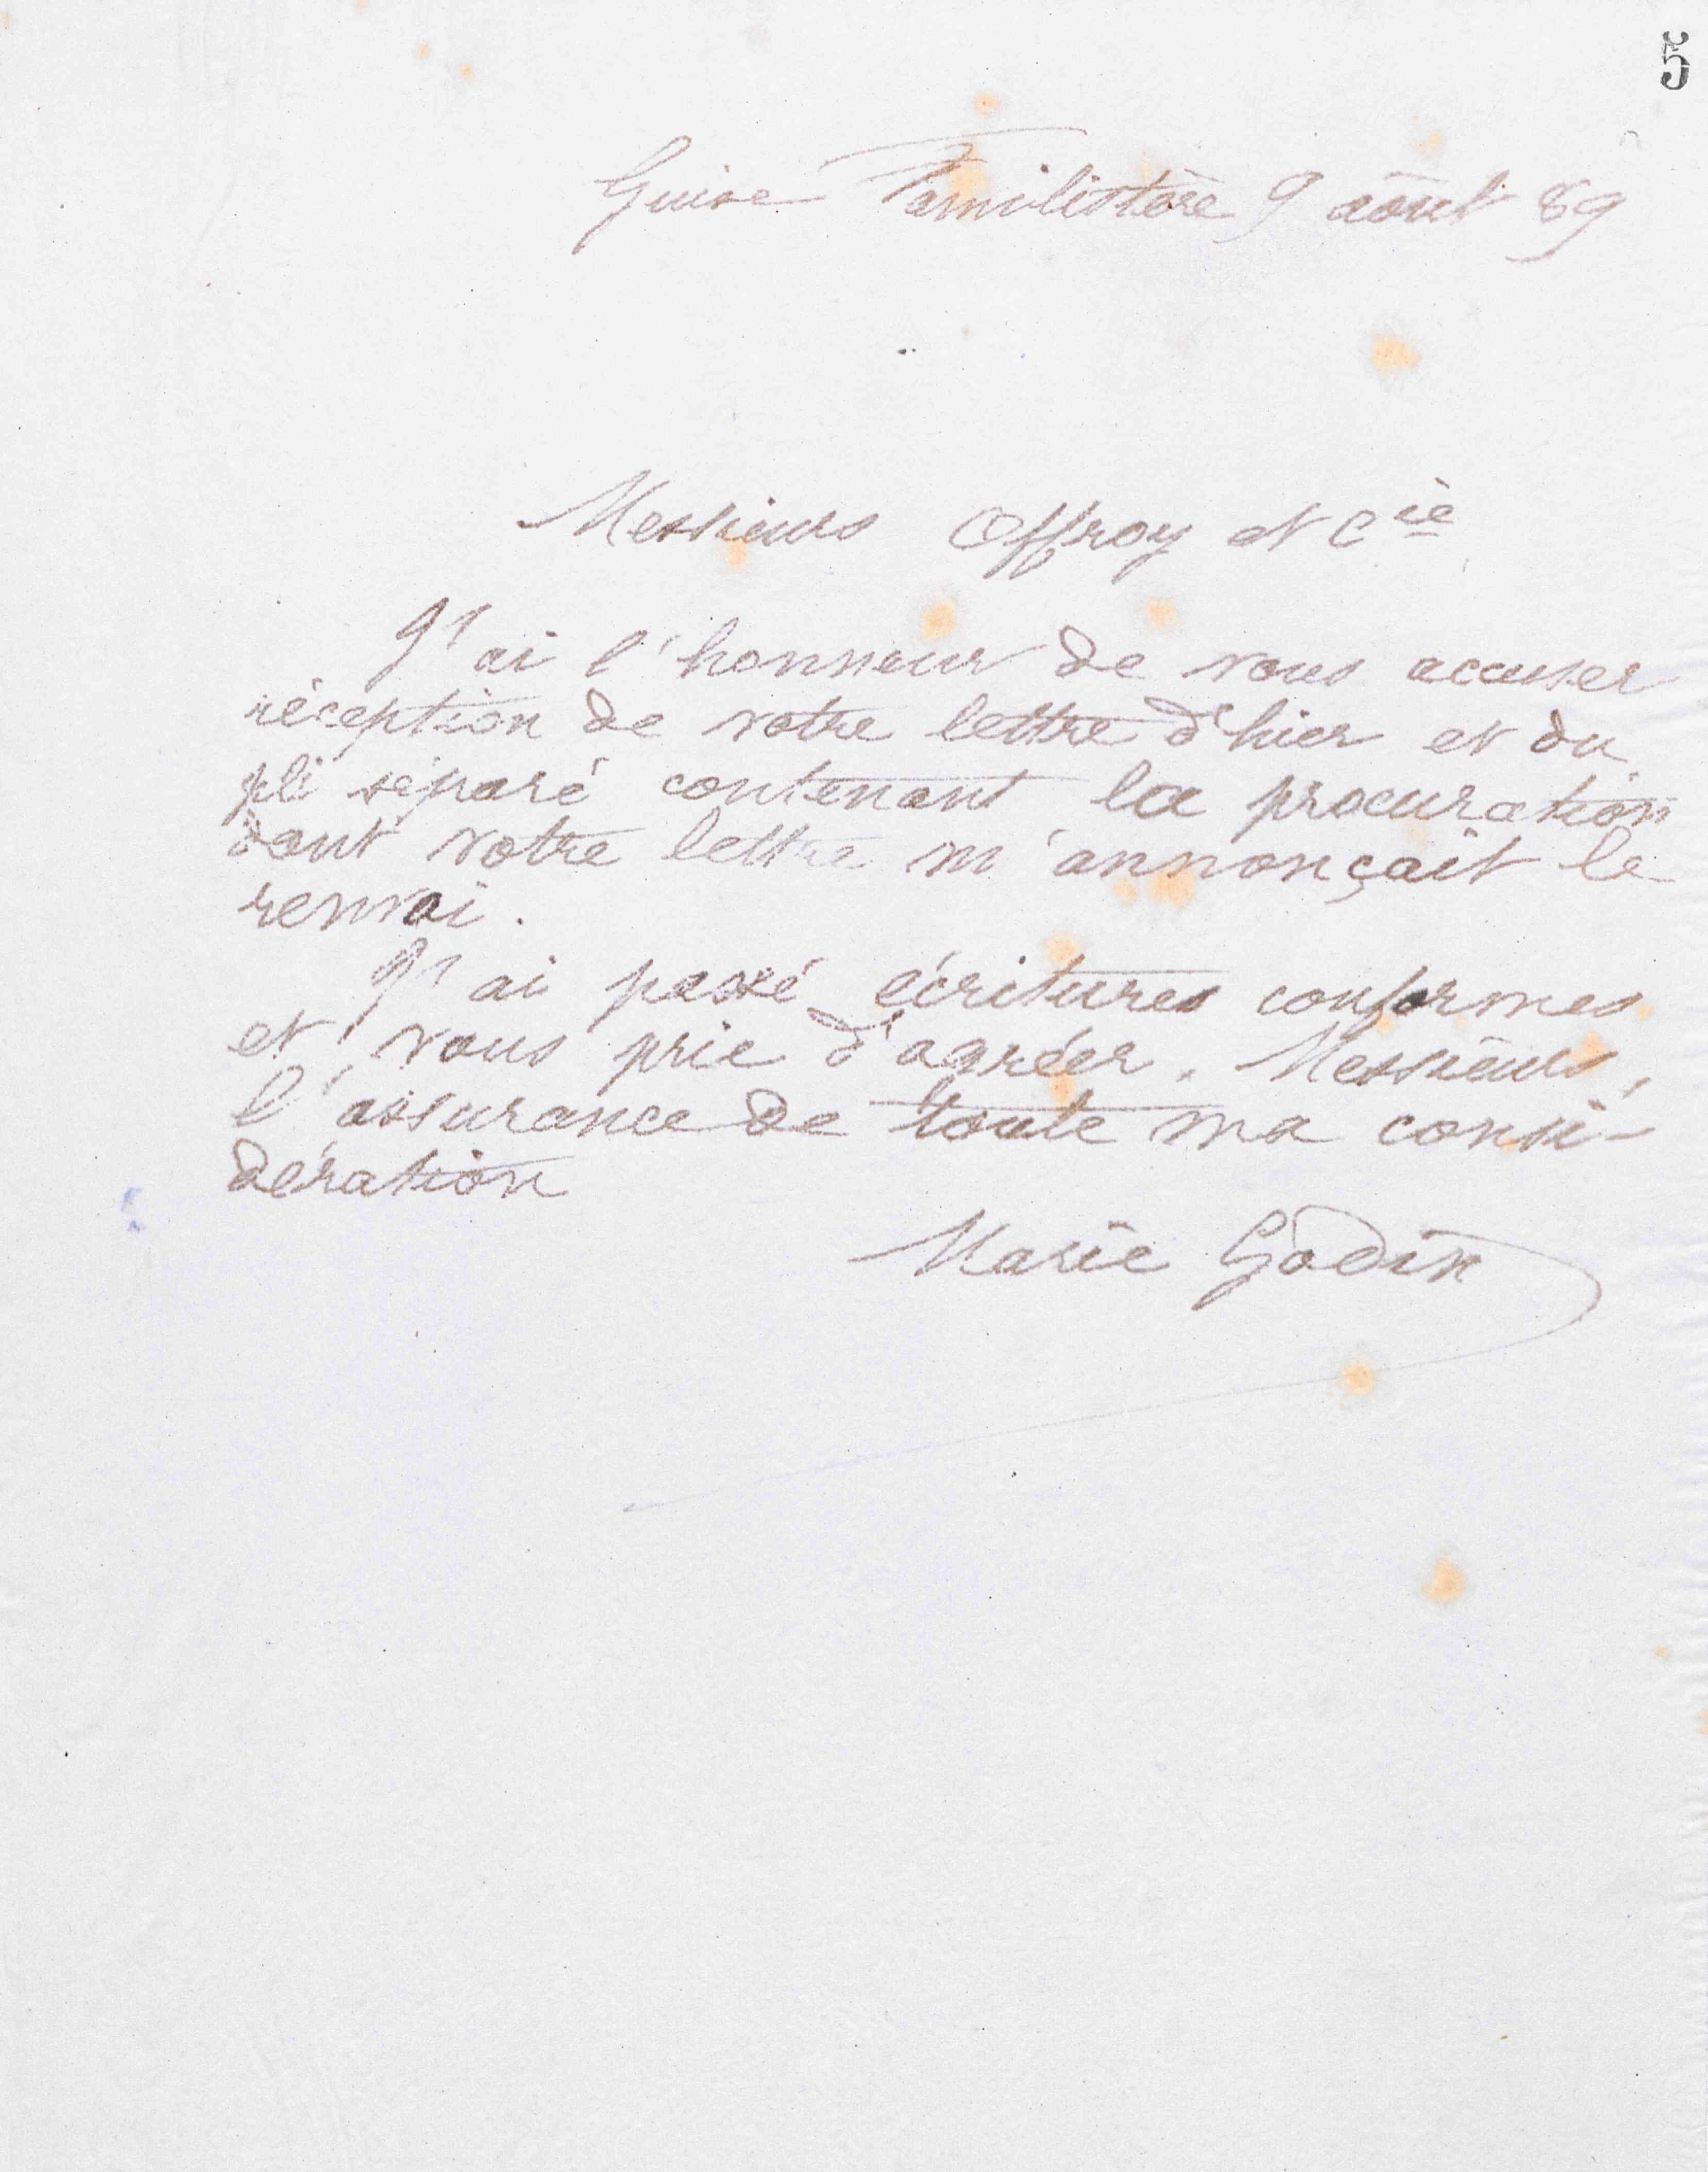 5
Guise Familistère 9 août 89
Messieurs Offroy et Cie
J'ai l'honneur de vous accuser
réception de votre lettre d'hier et du
pli séparé contenant la procuration
dont votre lettre m'annonçait le
renvoi.
J'ai passé écritures conformes
et vous prie d'agréer, Messieurs,
l'assurance de toute ma consi-
dération
Marie Godin